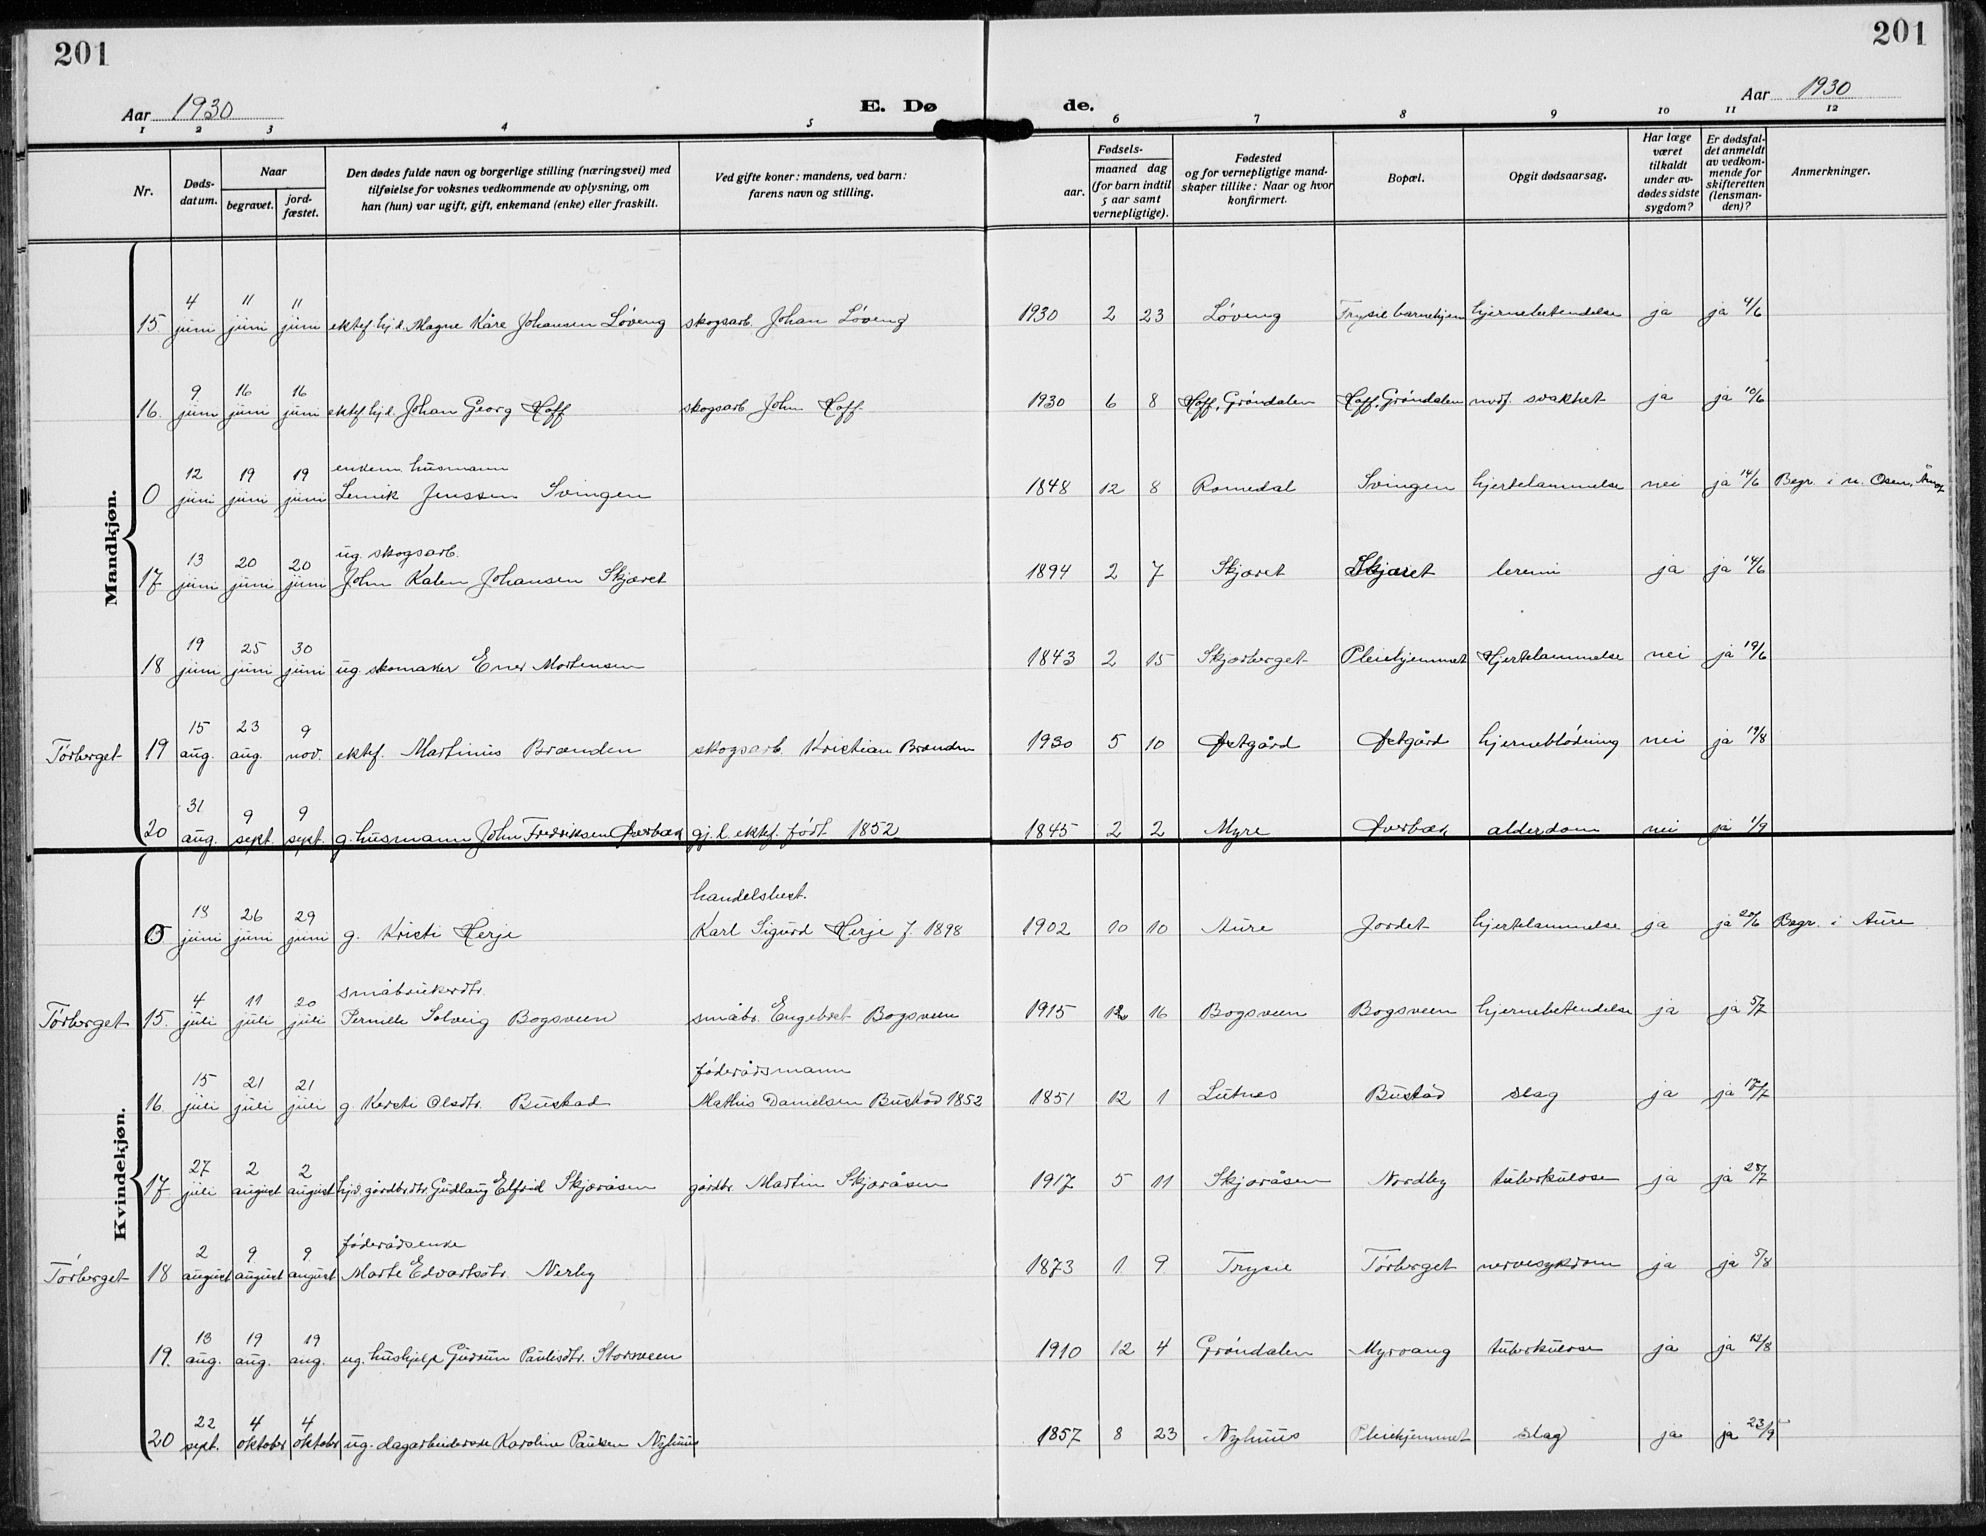 201
201
Aar 1930
E. Dø
de.
Aar 1930
1 2 3 4 5 6 7 8 9 10 11 12
Nr.
Døds-
datum.
Naar
begravet.
jord-
fæstet.
Den dødes fulde navn og borgerlige stilling (næringsvei) med
tilføielse for voksnes vedkommende av oplysning, om
han (hun) var ugift, gift, enkemand (enke) eller fraskilt.
Ved gifte koner: mandens, ved barn:
farens navn og stilling.
Fødsels-
aar.
maaned dag
(for barn indtil
5 aar samt
vernepligtige).
Fødested
og for vernepligtige mand-
skaper tillike: Naar og hvor
konfirmert.
Bopæl.
Opgit dødsaarsag.
Har læge
været
tilkaldt
under av-
dødes sidste
sygdom?
Er dødsfal-
det anmeldt
av vedkom-
mende for
skifteretten
(lensman-
den)?
Anmerkninger.
Mandkjøn.
4 11 11
15 juni juni juni ektef. hj.d. Magne Kåre Johansen Løveng skogsarb. Johan Løveng 1930 2 23 Løveng Trysil barnehjem hjernebetendelse ja ja 4/6
9 16 16
16. juni juni juni ektef. hj.d. Johan Georg Hoff skogsarb. John Hoff 1930 6 8 Hoff, Grøndalen Hoff, Grøndalen medf svakhet ja ja 10/6
12 19 19 enkem. husmann
0 juni juni juni Lemik Jenssen Svingen 1848 12 8 Romedal Svingen hjertelammelse nei ja 14/6 Begr. i n. Osen, Åmot
13 20 20 ug. skogsarb.
17 juni juni juni John Kalen Johansen Skjæret 1894 2 7 Skjæret Skjæret ja ja 14/6
19 25 30
18 juni juni juni ug. skomaker Ener Mortensen 1843 2 15 Skjærberget Pleiehjemmet Hjertelammelse nei ja 19/6
15 23 9
Tørberget 19 aug. aug. nov. ektef. Martinius Brænden skogsarb. Kristian Brænden 1930 5 10 Østgård Østgård hjerneblødning nei ja 19/8
31 9 9
20 aug. sept. sept. g. husmann John Fredriksen Øverbæk gj.l. ektef. født 1852 1845 2 2 Myre Øverbæk alderdom nei ja 1/9
Kvindekjøn.
handelsbest.
18 26 29
0 juni juni juni g. Kristi Herje Karl Sigurd Herje f. 1898 1902 10 10 Aure Jordet hjertelammelse ja ja 20/6 Begr. i Aure
4 11 20 småbrukerdtr.
Tørberget 15. juli juli juli Pernille Solveig Bogsveen småbr. Engebret Bogsveen 1915 12 16 Bogsveen Bogsveen hjernebetendelse ja ja 5/7
15 21 21 føderådsmann
16 juli juli juli g Kersti Olsdtr. Bustad Mathis Danielsen Bustad 1852 1851 12 1 Lutnes Bustad slag ja ja 17/7
27 2 2
17 juli august august hjv. gårdbr.dtr. Gudlaug Elfrid Skjæråsen gårdbr. Martin Skjæråsen 1917 5 11 Skjæråsen Nordby tuberkulose ja ja 28/7
2 9 9 føderådsenke
Tørberget 18 august august august Marte Edvartsdtr. Nerby 1873 1 9 Trysil Tørberget nervesykdom ja ja 5/8
13 19 19
19. aug. aug. aug. ug. hushjelp Gudrun Paulsdtr. Storsveen 1910 12 4 Grøndalen Myrvang tuberkulose ja ja 13/8
22 4 4
20 sept. oktober oktober ug. dagarbeiderske Karoline Paulsen Nyhuus 1857 8 23 Nyhuus Pleiehjemmet slag ja ja 23/9